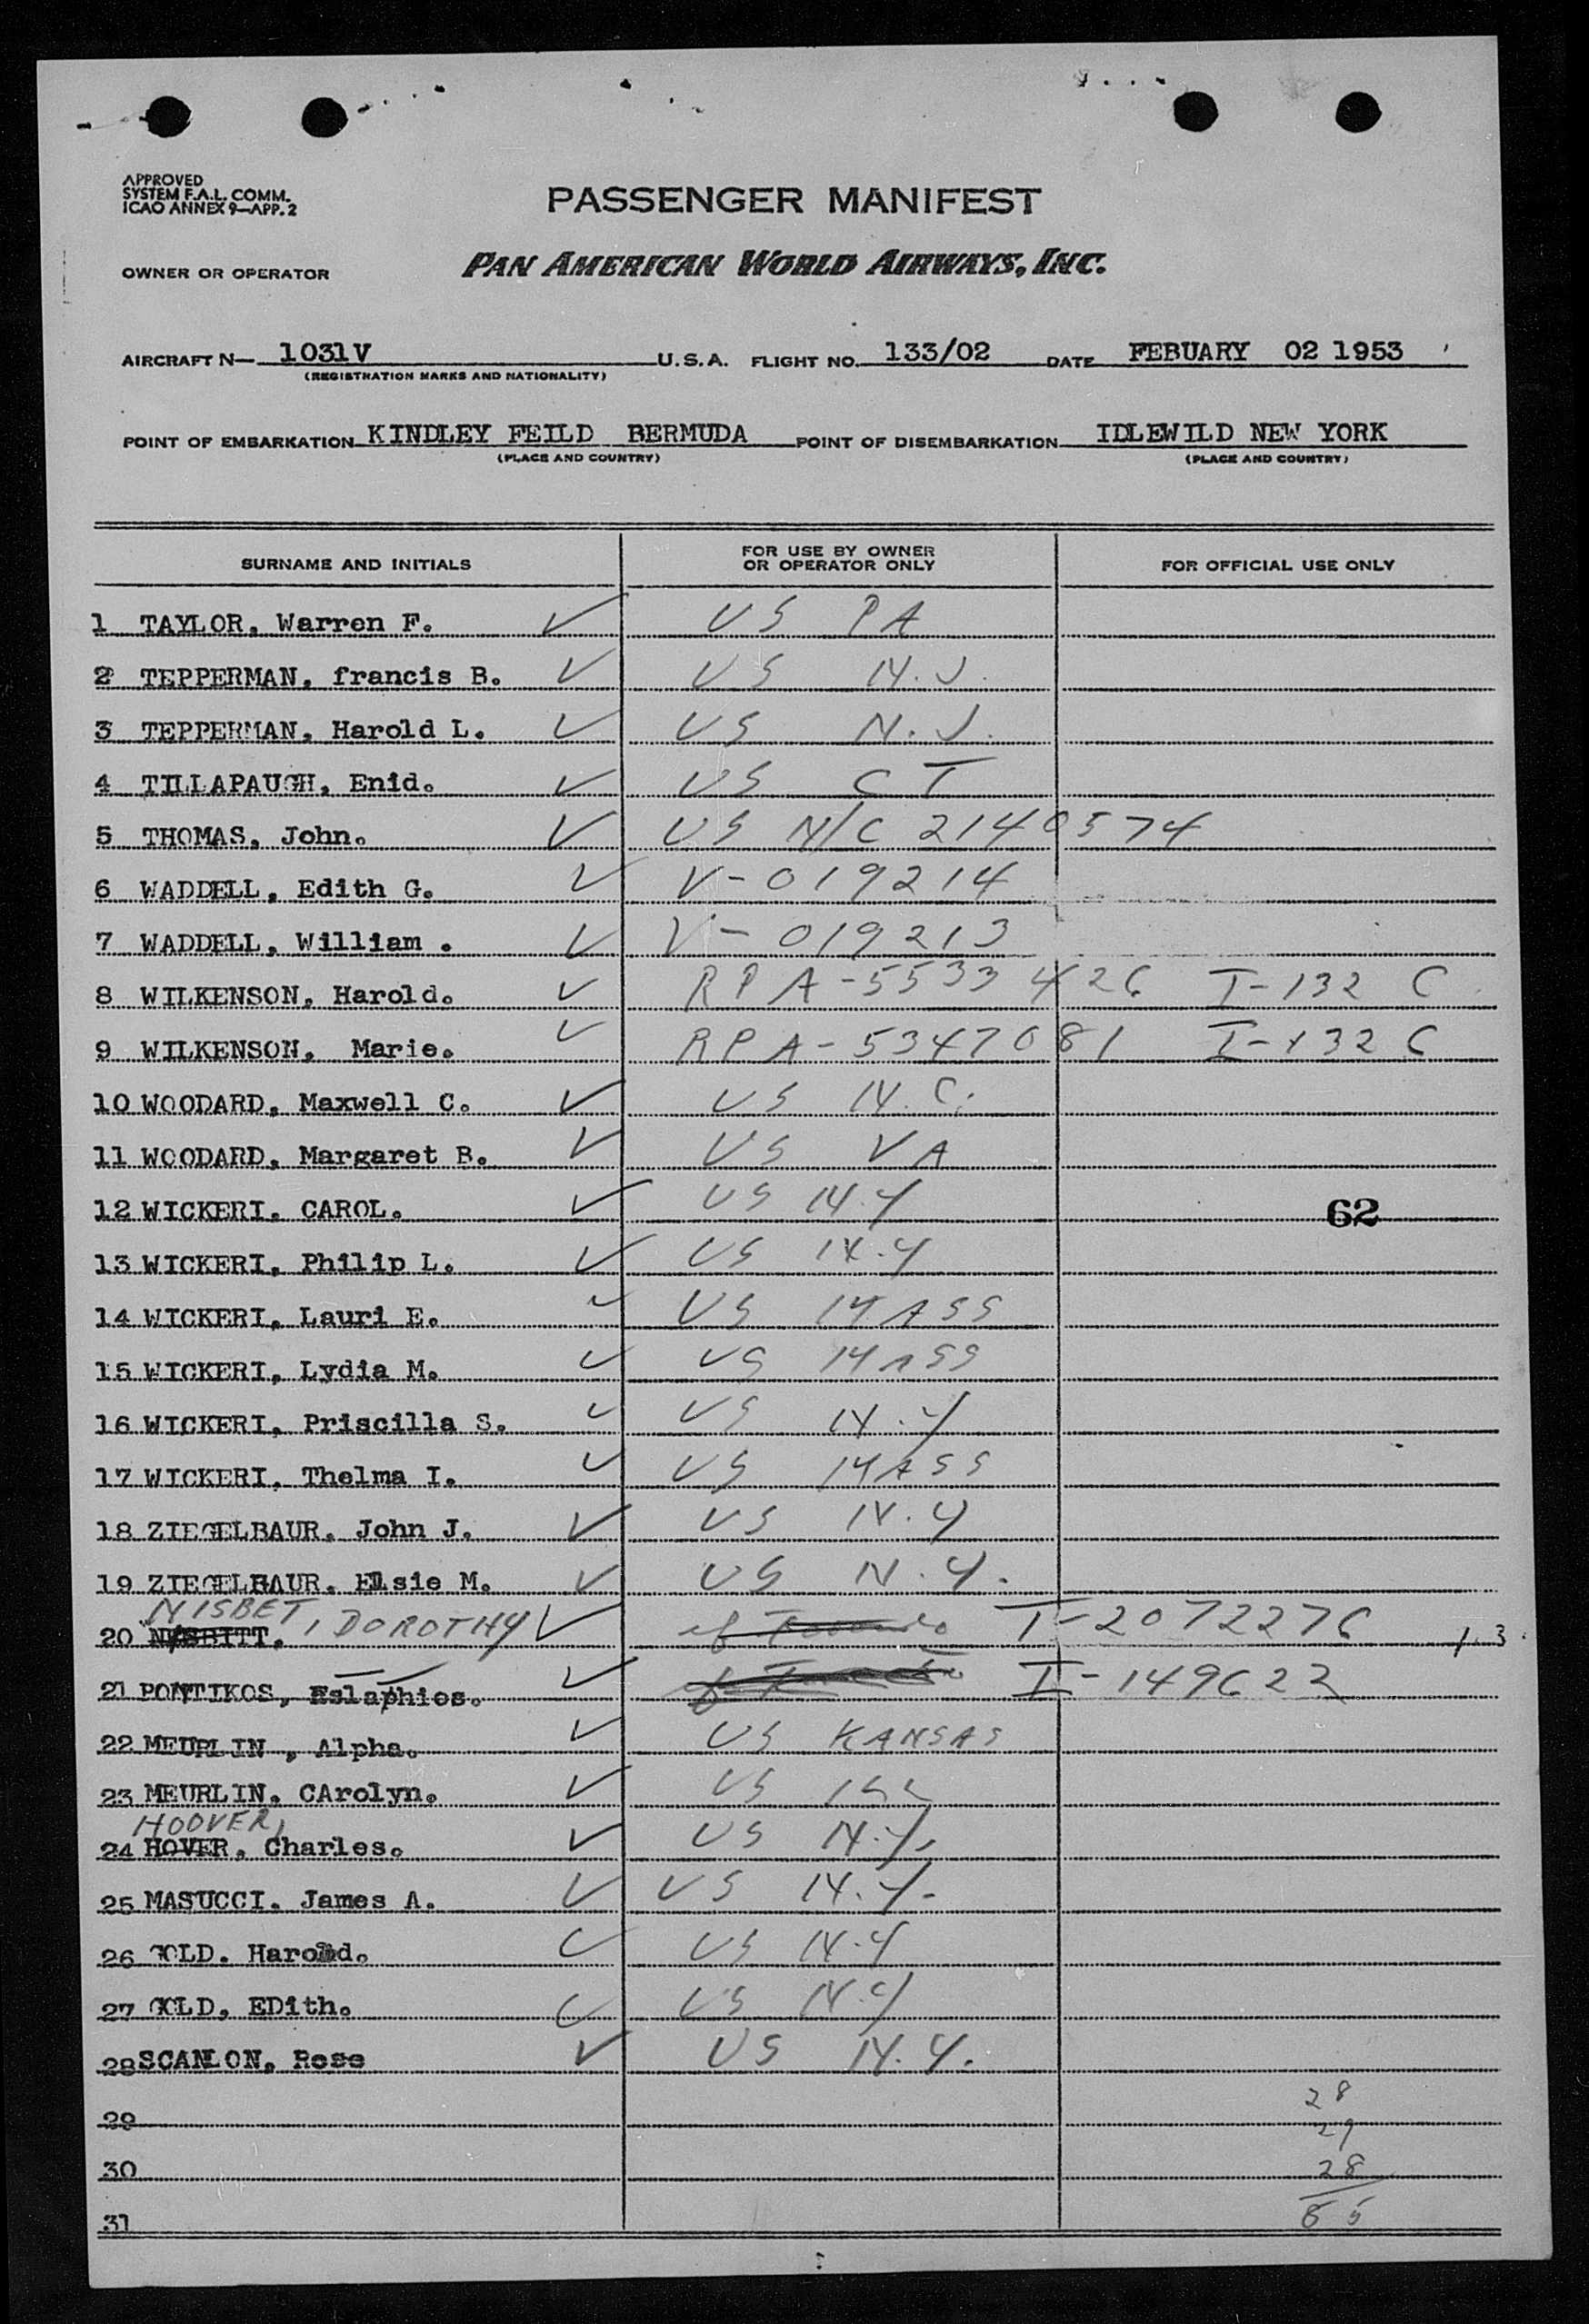 APPROVED
SYSTEM F.A.L. COMM.
ICAO ANNEX 9—APP. 2
PASSENGER MANIFEST
OWNER OR OPERATOR PAN AMERICAN WORLD AIRWAYS, INC.
AIRCRAFT N— 1031V U.S.A. FLIGHT NO. 133/02 DATE FEBUARY 02 1953
(REGISTRATION MARKS AND NATIONALITY)
POINT OF EMBARKATION KINDLEY FEILD BERMUDA POINT OF DISEMBARKATION IDLEWILD NEW YORK
(PLACE AND COUNTRY) (PLACE AND COUNTRY)
SURNAME AND INITIALS FOR USE BY OWNER OR OPERATOR ONLY FOR OFFICIAL USE ONLY
1 TAYLOR, Warren F. ✓ US PA
2 TEPPERMAN, francis B. ✓ US N.J.
3 TEPPERMAN, Harold L. ✓ US N.J.
4 TILLAPAUGH, Enid. ✓ US CT
5 THOMAS, John. ✓ US N/C 2140574
6 WADDELL, Edith G. ✓ V-019214
7 WADDELL, William . ✓ V-019213
8 WILKENSON, Harold. ✓ RP A-5533426 I-132 C
9 WILKENSON, Marie. ✓ RP A-5347081 I-132 C
10 WOODARD, Maxwell C. ✓ US N.C.
11 WOODARD, Margaret B. ✓ US VA
12 WICKERI, CAROL. ✓ US N.Y
62
13 WICKERI, Philip L. ✓ US N.Y
14 WICKERI, Lauri E. ✓ US MASS
15 WICKERI, Lydia M. ✓ US MASS
16 WICKERI, Priscilla S. ✓ US N.Y
17 WICKERI, Thelma I. ✓ US MASS
18 ZIEGELBAUR, John J. ✓ US N.Y
19 ZIEGELBAUR, Elsie M. ✓ US N.Y.
NISBET, DOROTHY
20 NESBITT. ✓ I-2072276
21 PONTIKOS, ✓ I-149622
22 MEURLIN , Alpha. ✓ US KANSAS
23 MEURLIN, CArolyn. ✓ US
HOOVER,
24 HOVER, Charles. ✓ US N.Y.
25 MASUCCI, James A. ✓ US N.Y.
26 GOLD. Harold. ✓ US N.Y
27 GOLD, EDith. ✓ US N.Y
28 SCANLON, Rose ✓ US N.Y.
28
29
29
30
28
31
85